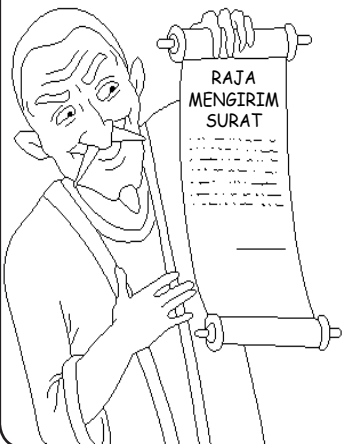 RAJA
MENGIRIM
SURAT